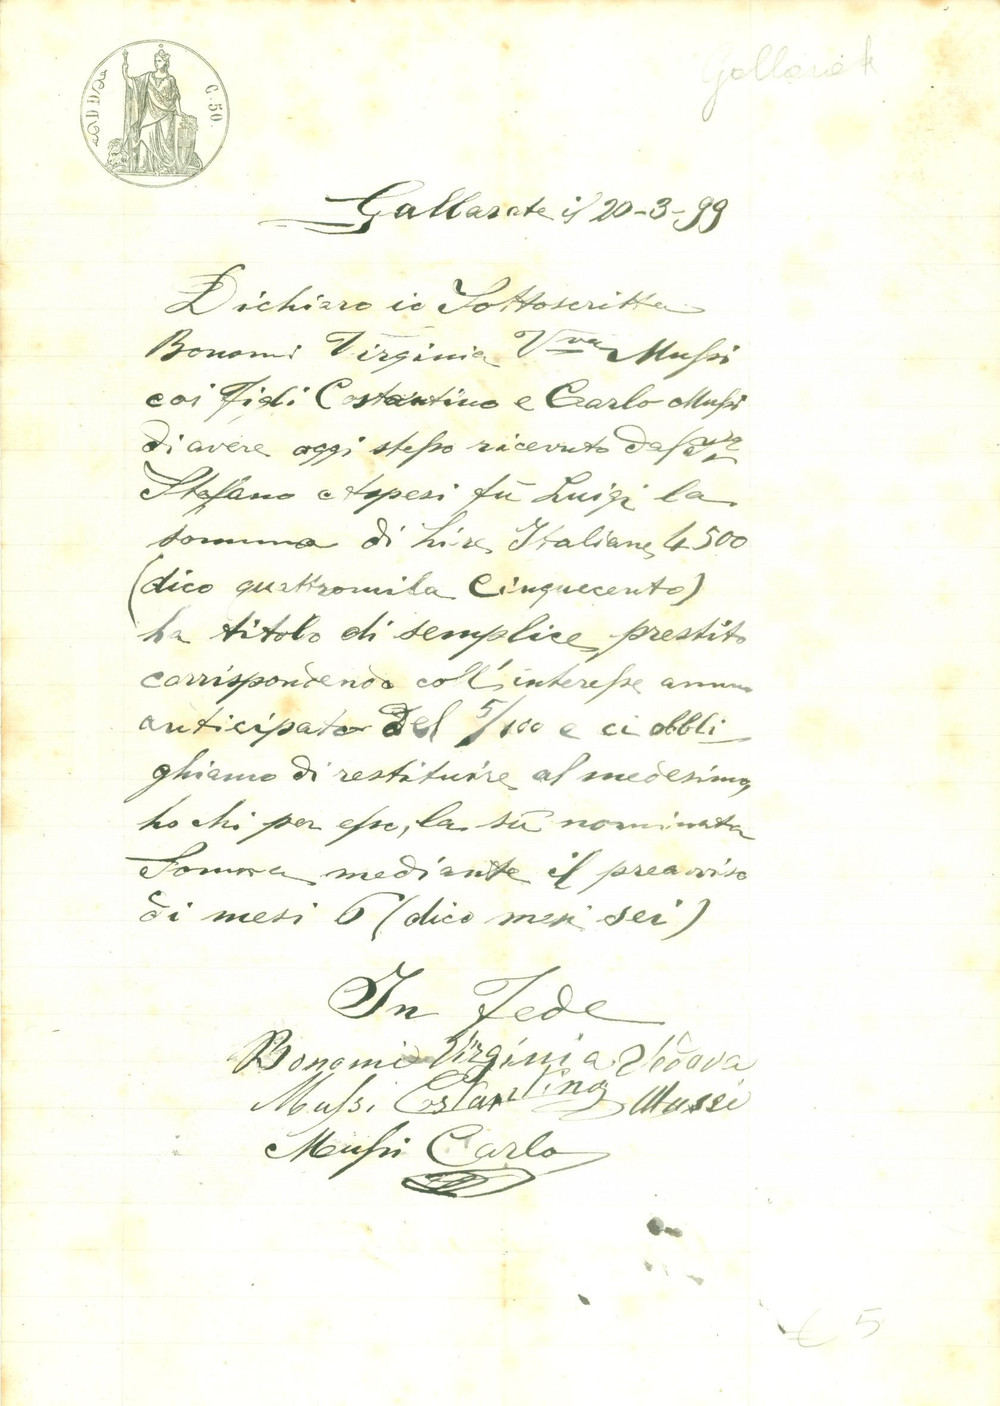 C. 50.
Gallarate
Gallarate il 20-3-99
Dichiaro io Sottoscritta
Bonomi Virginia Vva Mussi
coi Figli Costantino e Carlo Mussi
di avere oggi stesso ricevuto dal
Stefano Aspesi fù Luigi la
somma di Lire Italiane 4500
(dico quattromila Cinquecento)
ha titolo di semplice prestito
corrispondendo coll'interesse annuo
anticipato del 5/100 e ci obbli
ghiamo di restituire al medesimo
ho chi per esso, la sù nominata
Somma mediante il preavviso
di mesi 6 (dico mesi sei)
In Fede
Bonomi Virginia Vedova
Mussi Costantino Mussi
Mussi Carlo
€ 5